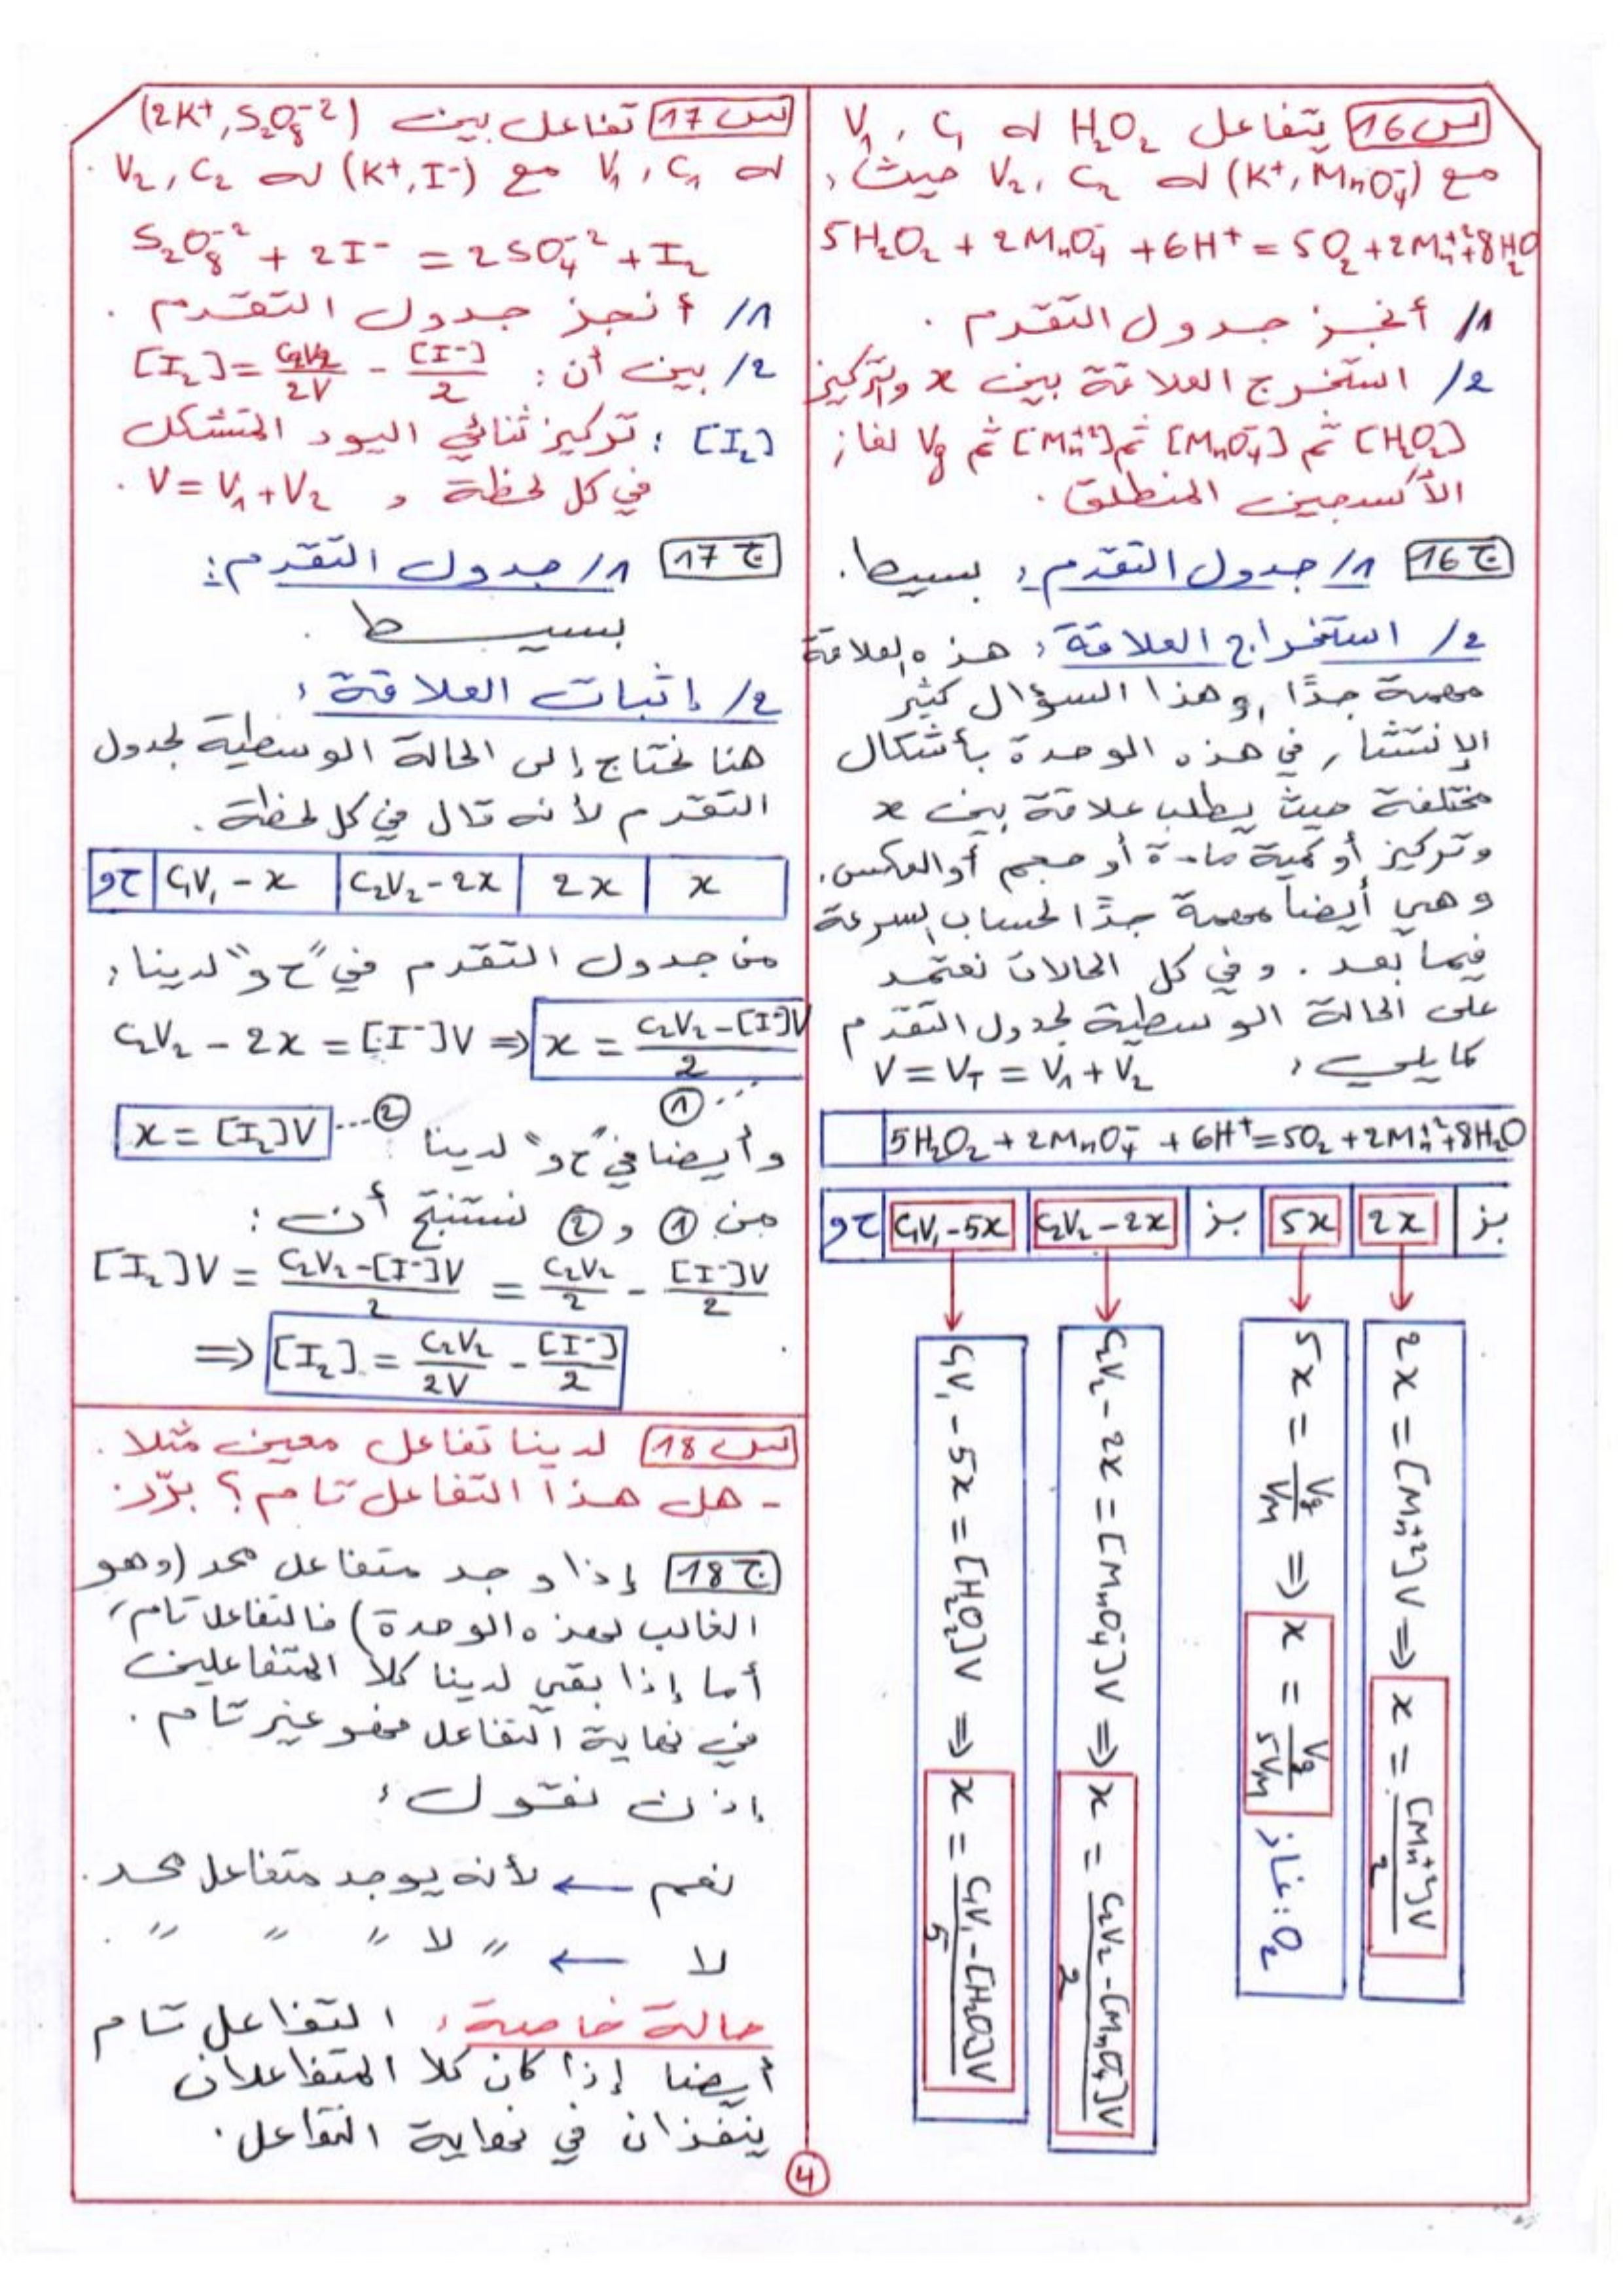 س16 يتفاعل H₂O₂ له C₁ ، V₁
مع (K⁺, MnO₄⁻) له C₂ ، V₂ حيث:
5H₂O₂ + 2MnO₄⁻ + 6H⁺ = 5O₂ + 2Mn⁺² + 8H₂O
1/ أنجز جدول التقدم .
2/ استخرج العلاقة بين x والتركيز
[H₂O₂] ثم [MnO₄⁻] ثم [Mn⁺²] ثم Vg لغاز
الأكسجين المنطلق .
ج16 1/ جدول التقدم: بسيط.
2/ استخراج العلاقة: هذه العلاقة
مهمة جدًا, وهذا السؤال كثير
الإنتشار في هذه الوحدة بأشكال
مختلفة حيث يطلب علاقة بين x
وتركيز أو كمية مادة أو حجم أو العكس.
وهي أيضا مهمة جدًا لحساب السرعة
فيما بعد . وفي كل الحالات نعتمد
على الحالة الوسطية لجدول التقدم
كما يلي: V = V_T = V₁ + V₂
5H₂O₂ + 2MnO₄⁻ + 6H⁺ = 5O₂ + 2Mn⁺² + 8H₂O
ح و | C₁V₁ - 5x | C₂V₂ - 2x | بز | 5x | 2x | بز
C₁V₁ - 5x = [H₂O₂]V ⇒ x = (C₁V₁ - [H₂O₂]V)/5
C₂V₂ - 2x = [MnO₄⁻]V ⇒ x = (C₂V₂ - [MnO₄⁻]V)/2
5x = Vg/V_M ⇒ x = Vg/5V_M غاز: O₂
2x = [Mn⁺²]V ⇒ x = [Mn⁺²]V/2
س17 تفاعل بين (2K⁺, S₂O₈⁻²)
له C₁ ، V₁ مع (K⁺, I⁻) له C₂ ، V₂ .
S₂O₈⁻² + 2I⁻ = 2SO₄⁻² + I₂
1/ أنجز جدول التقدم .
2/ بين أن: [I₂] = C₂V₂/2V - [I⁻]/2
[I₂] : تركيز ثنائي اليود المتشكل
في كل لحظة و V = V₁ + V₂ .
ج17 1/ جدول التقدم:
بسيط .
2/ إثبات العلاقة:
هنا نحتاج إلى الحالة الوسطية لجدول
التقدم لأنه قال في كل لحظة .
ح و | C₁V₁ - x | C₂V₂ - 2x | 2x | x
من جدول التقدم في "ح و" لدينا:
C₂V₂ - 2x = [I⁻]V ⇒ x = (C₂V₂ - [I⁻]V)/2
...①
وأيضا في "ح و" لدينا x = [I₂]V ...②
من ① و ② نستنتج أن :
[I₂]V = (C₂V₂ - [I⁻]V)/2 = C₂V₂/2 - [I⁻]V/2
⇒ [I₂] = C₂V₂/2V - [I⁻]/2
س18 لدينا تفاعل معين مثلا .
- هل هذا التفاعل تام؟ برّر.
ج18 إذا وجد متفاعل محد (وهو
الغالب لهذه الوحدة) فالتفاعل تام،
أما إذا بقي لدينا كلا المتفاعلين
في نهاية التفاعل فهو غير تام .
إذن نقول:
نعم ← لأنه يوجد متفاعل محد.
لا ← " لا " " " .
حالة خاصة: التفاعل تام
أيضا إذا كان كلا المتفاعلان
ينفذان في نهاية التفاعل.
4